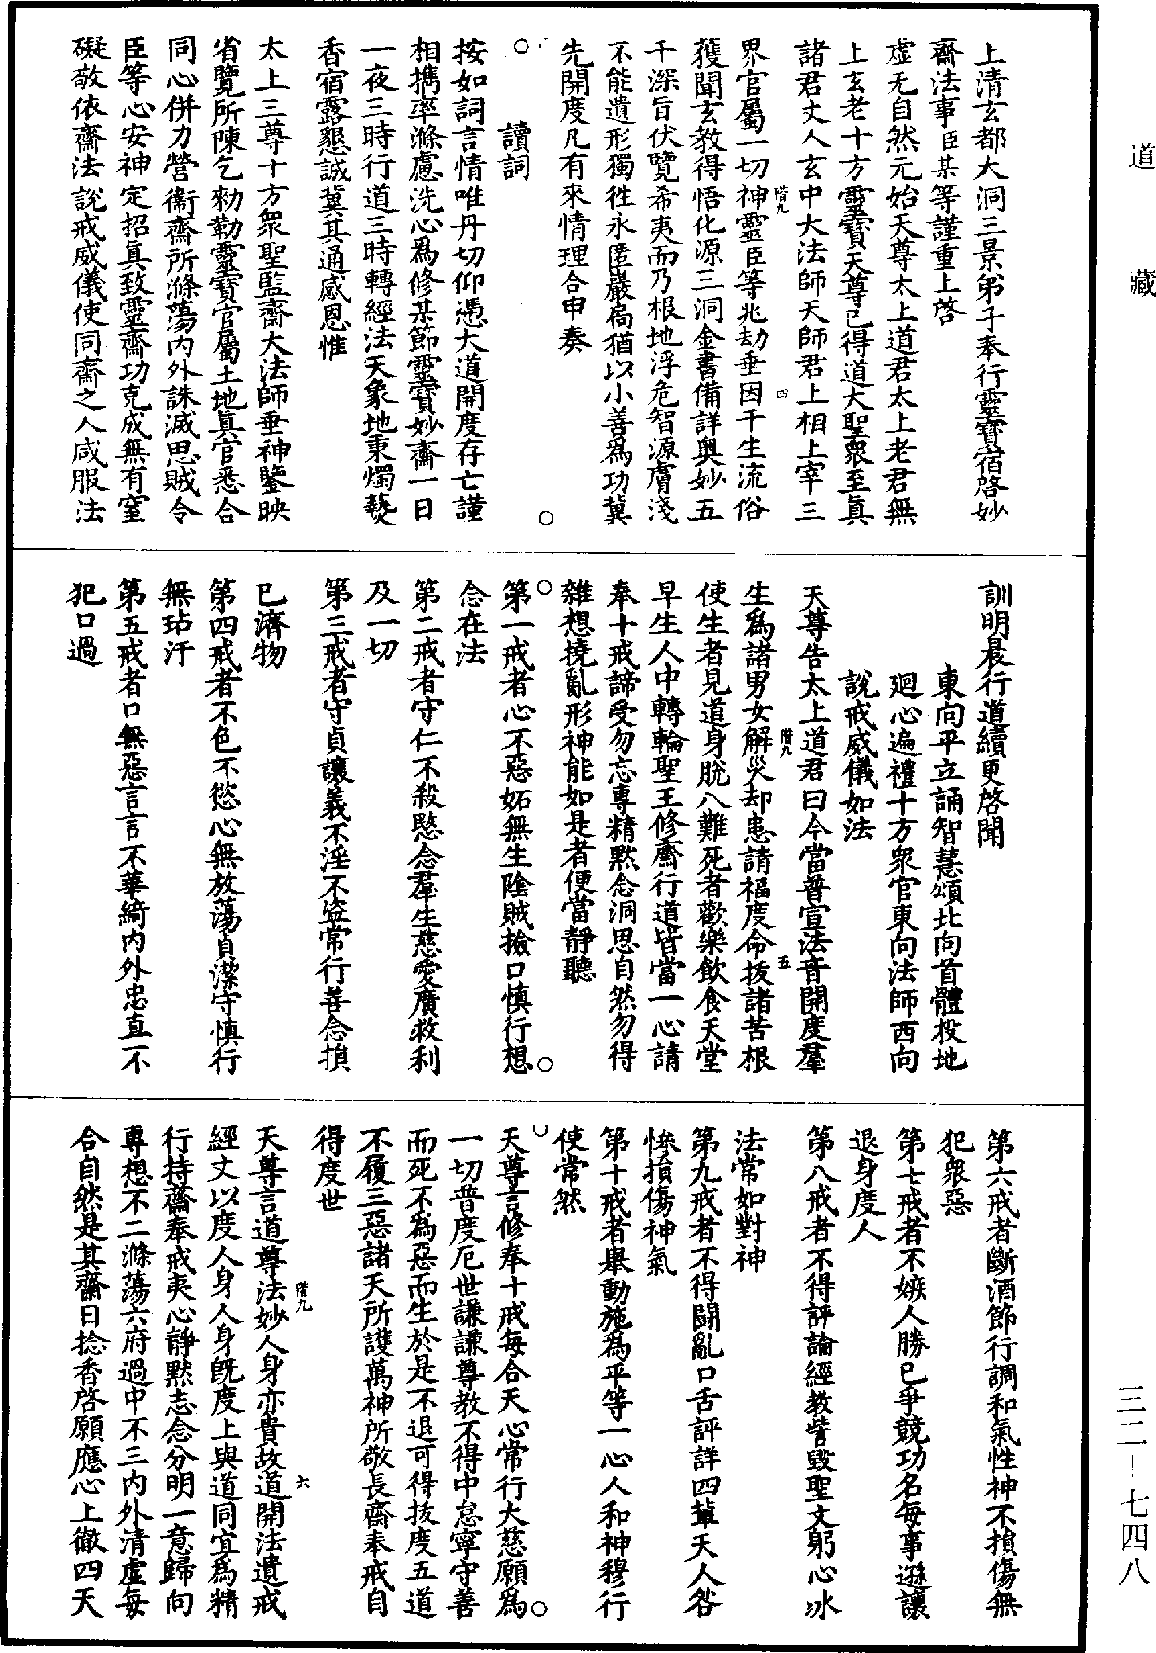 道藏
三二－七四八
上清玄都大洞三景弟子奉行靈寶宿啓妙
齋法事臣某等謹重上啓
虛无自然元始天尊太上道君太上老君無
上玄老十方靈寶天尊已得道大聖衆至真
諸君丈人玄中大法師天師君上相上宰三
界官屬一切神靈臣等兆劫垂因千生流俗
獲聞玄教得悟化源三洞金書備詳奧妙五
千深旨伏覽希夷而乃根地浮危智源膚淺
不能遺形獨徃永匿巖扃猶以小善爲功冀
先開度凡有來情理合申奏
讀詞
按如詞言情唯丹切仰憑大道開度存亡謹
相擕率滌慮洗心爲修某節靈寶妙齋一日
一夜三時行道三時轉經法天象地秉燭爇
香宿露懇誠冀其通感恩惟
太上三尊十方衆聖監齋大法師垂神鑒映
省覽所陳乞勑勒靈寶官屬土地真官悉合
同心併力營衞齋所滌蕩内外誅滅思賊令
臣等心安神定招真致靈齋功克成無有窒
礙敬依齋法說戒威儀使同齋之人咸服法
訓明晨行道續更啓聞
東向平立誦智慧頌北向首體投地
廻心遍禮十方衆官東向法師西向
說戒威儀如法
天尊告太上道君曰今當普宣法音開度羣
生爲諸男女解災却患請福度命拔諸苦根
使生者見道身脫八難死者歡樂飲食天堂
早生人中轉輪聖王修齋行道皆當一心請
奉十戒諦受勿忘專精黙念洞思自然勿得
雜想撓亂形神能如是者便當靜聽
第一戒者心不惡妬無生陰賊撿口慎行想
念在法
第二戒者守仁不殺愍念羣生慈愛廣救利
及一切
第三戒者守貞讓義不淫不盜常行善念損
已濟物
第四戒者不色不慾心無放蕩貞潔守慎行
無玷汙
第五戒者口無惡言言不華綺内外忠直不
犯口過
第六戒者斷酒節行調和氣性神不損傷無
犯衆惡
第七戒者不嫉人勝已爭競功名每事遜讓
退身度人
第八戒者不得評論經教訾毀聖文躬心冰
法常如對神
第九戒者不得鬪亂口舌評詳四輩天人咎
慘損傷神氣
第十戒者舉動施爲平等一心人和神穆行
使常然
天尊言修奉十戒每合天心常行大慈願爲
一切普度厄世謙謙尊教不得中怠寧守善
而死不爲惡而生於是不退可得拔度五道
不履三惡諸天所護萬神所敬長齋奉戒自
得度世
天尊言道尊法妙人身亦貴故道開法遺戒
經文以度人身人身旣度上與道同宜爲精
行持齋奉戒夷心靜黙志念分明一意歸向
專想不二滌蕩六府過中不三内外清虛每
合自然是其齋日捻香啓願應心上徹四天
階九
四
階九
五
階九
六